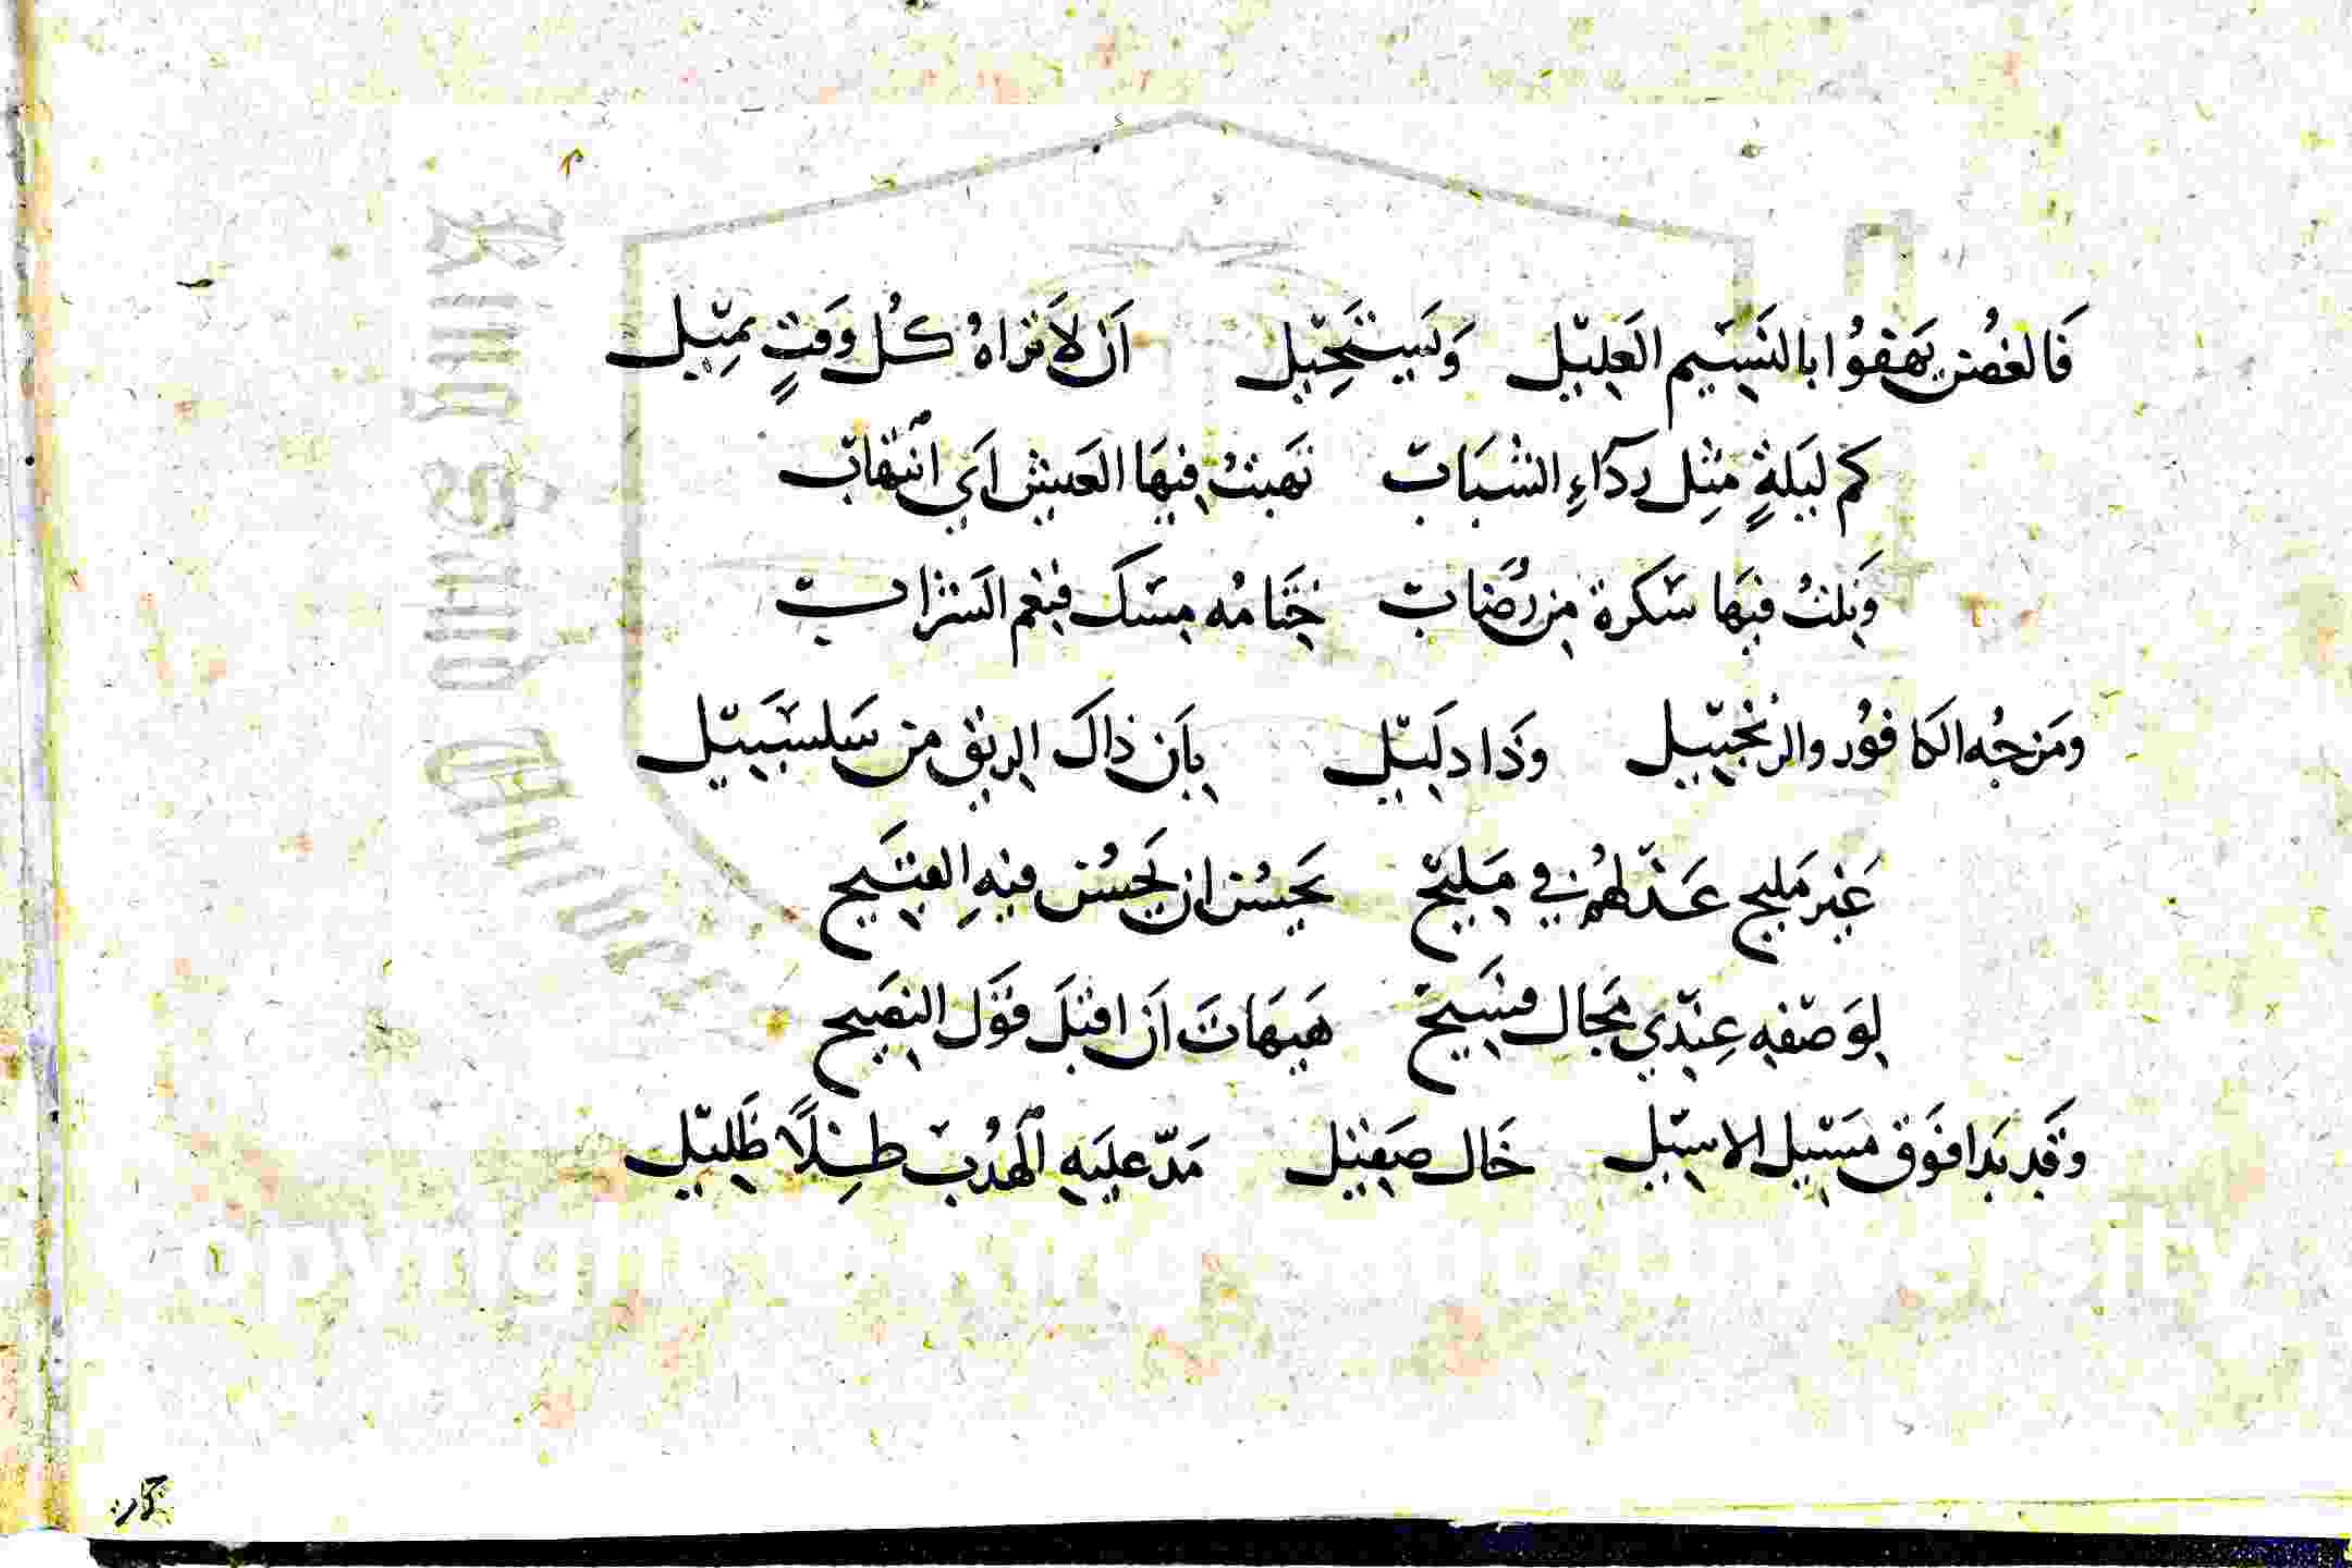 فَالغُصْن يَهْفُوا بالنَسِيْم العَلِيْل وَيَسْتَحِيْل اَن لاَ تَراهُ كُل وَقتٍ يمِيْل
كم لَيْلةٍ مِثل ردَآءِ الشَبَابْ نَهبتُ فيهَا العَيش اَي انتهَابْ
وَنِلتُ فيهَا سَكرة مِن رُضَابْ ختَامُه مِسْك فَنِعم الشَراب
ومَزجُه الكَافُور والزَنْجَبِيْل وذَا دلَيْل بِاَن ذاكَ الريْق من سَلسَبيْل
غَير مَليح عَذلهُم في مَليْح يَحسُن ان يَحْسُن فيهِ القَبيح
لِوَصْفه عِنْدي مَجال فسَيحْ هَيهَاتَ اَن اقبَل قَوْل النصَيح
وَقَد بَدا فَوق مَسْيل الاسيْل خَال صَقيْل مَدّ عليَه الهُدبْ ظِلاً ظَلِيْل